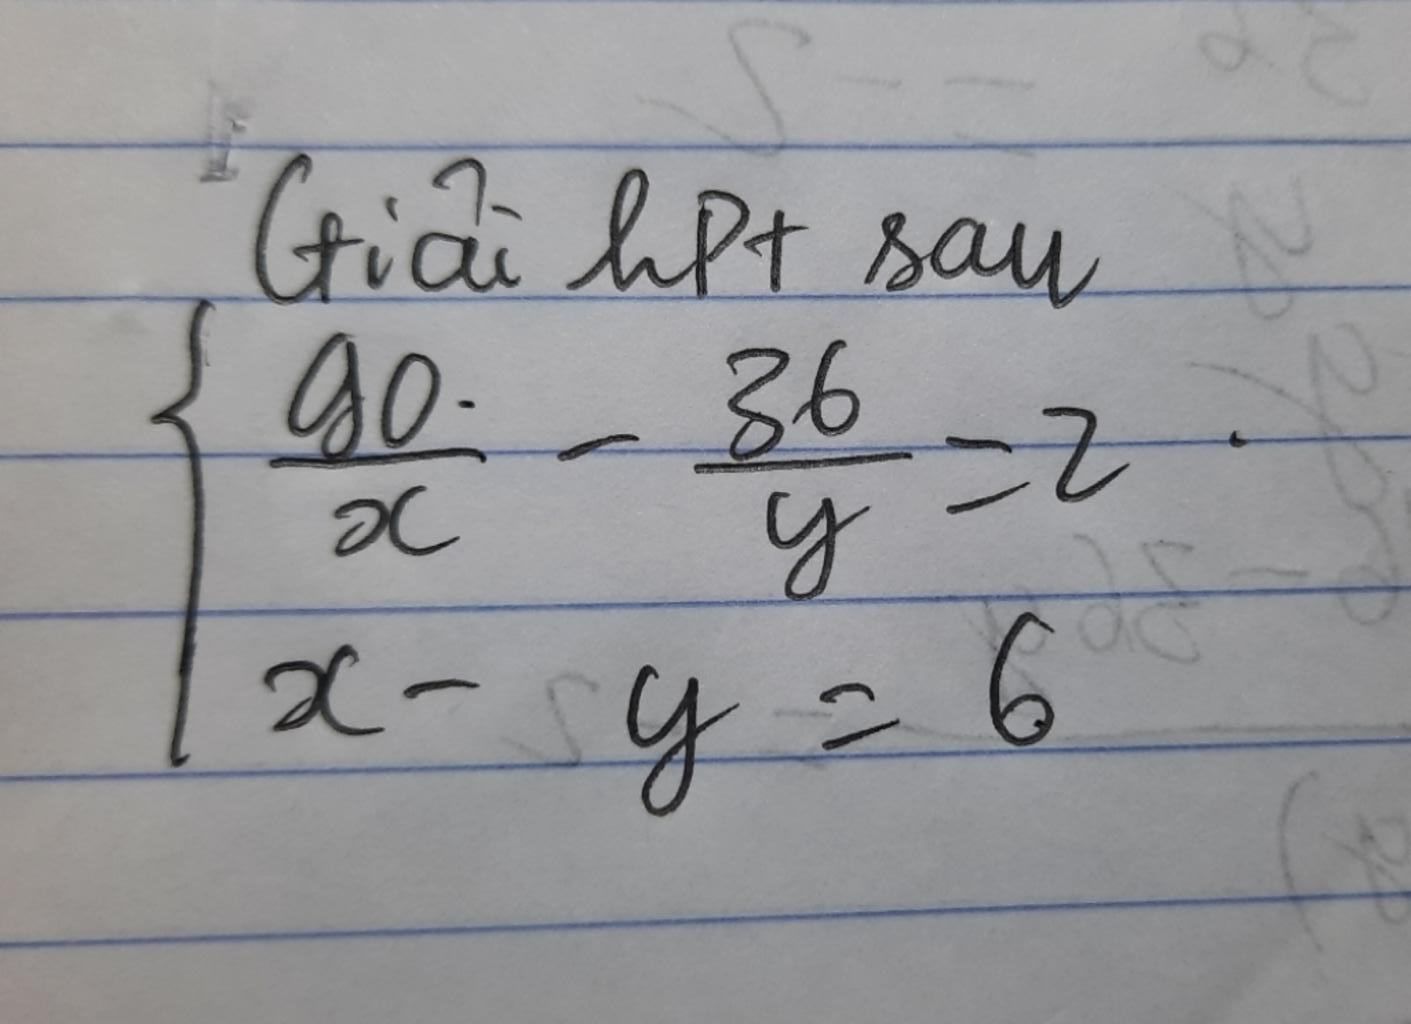 Giải hPt sau
90/x - 36/y = 2
x - y = 6